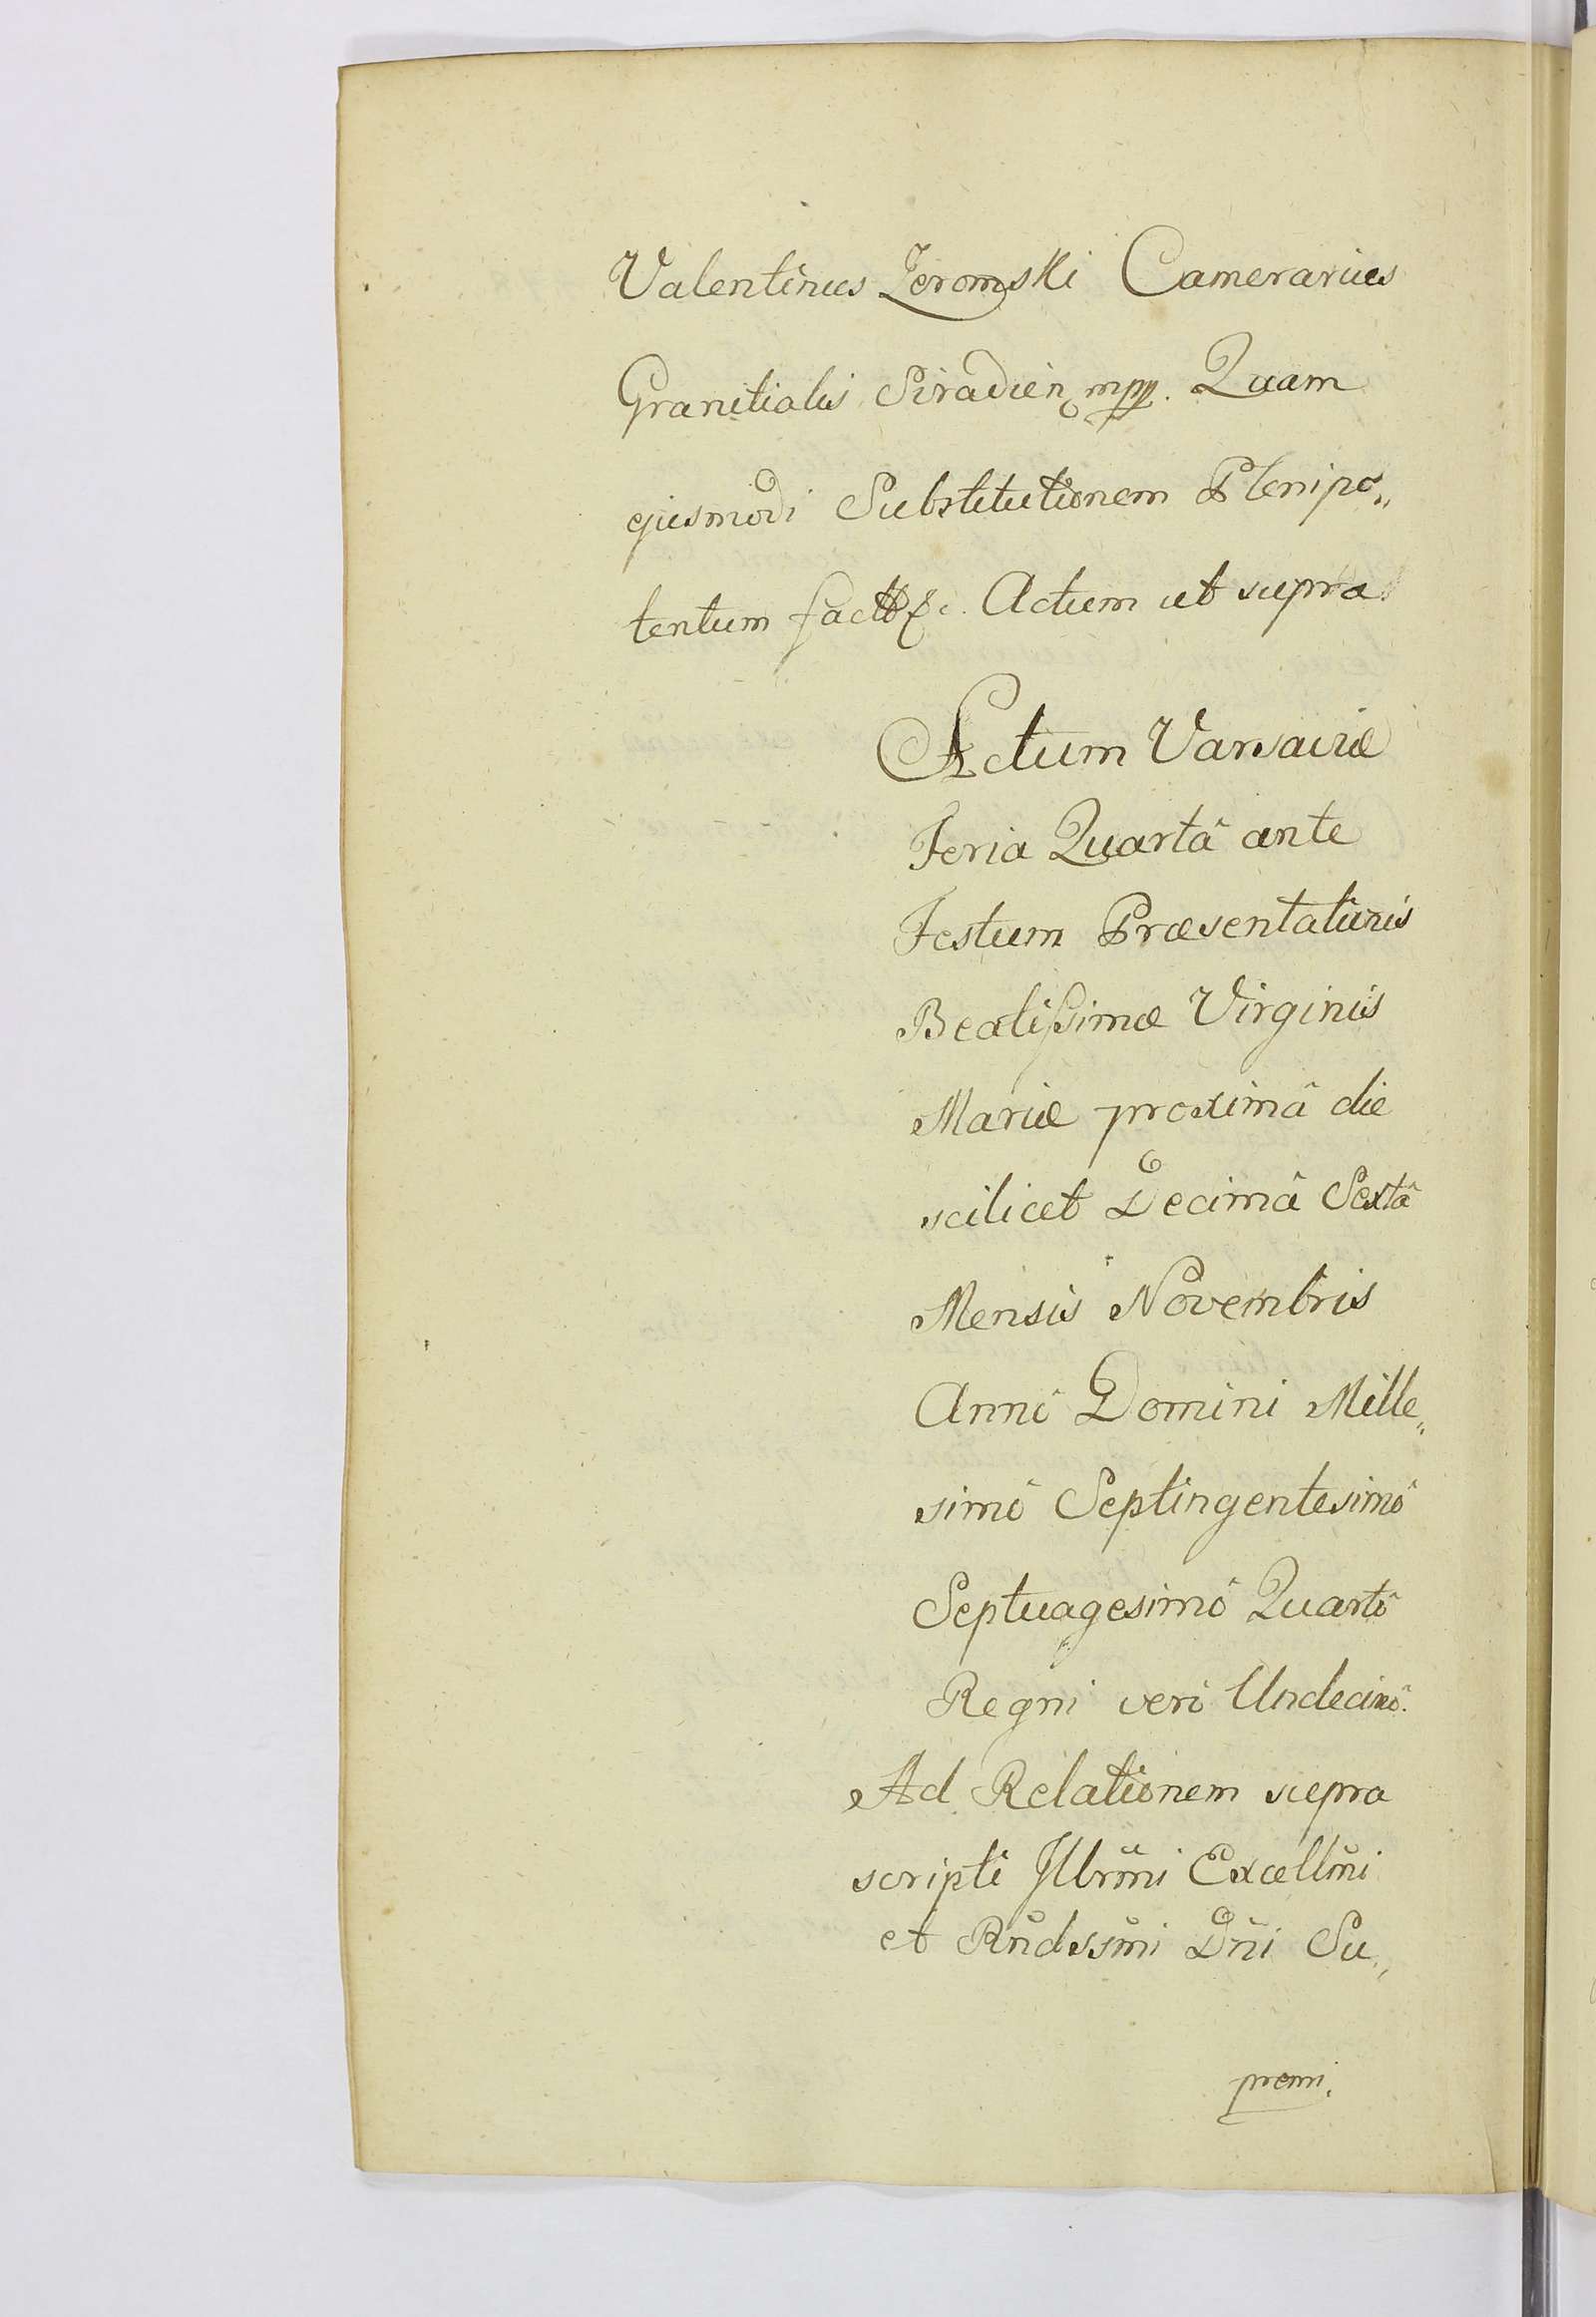 Valentinus Zeromski Camerarius
Granitialis Siradien mpp. Quam
ejusmodi Substitutionem Plenipo„
tentum fact &c. Actum ut supra
Actum Varsaviæ
Feria Quartâ ante
Festum Præsentationis
Beatissimæ Virginis
Mariæ proximâ die
scilicet Decimâ Sextâ
Mensis Novembris
Annô Domini Mille„
simô Septingentesimô
Septuagesimô Quartô
Regni verô Undecimô.
Ad Relationem supra
scripti Illrmi Excellmi
et Rndssmi Dni Su„
premi.